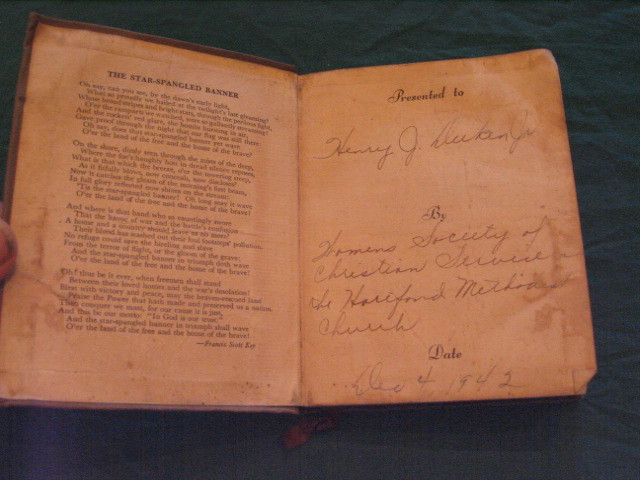 THE STAR-SPANGLED BANNER
Oh say, can you see, by the dawn's early light,
What so proudly we hailed at the twilight's last gleaming?
Whose broad stripes and bright stars, through the perilous fight,
O'er the ramparts we watched, were so gallantly streaming?
And the rockets' red glare, the bombs bursting in air,
Gave proof through the night that our flag was still there.
Oh say, does that star-spangled banner yet wave
O'er the land of the free and the home of the brave?
On the shore, dimly seen through the mists of the deep,
Where the foe's haughty host in dread silence reposes,
What is that which the breeze, o'er the towering steep,
As it fitfully blows, now conceals, now discloses?
Now it catches the gleam of the morning's first beam,
In full glory reflected now shines on the stream:
'Tis the star-spangled banner! Oh long may it wave
O'er the land of the free and the home of the brave!
And where is that band who so vauntingly swore
That the havoc of war and the battle's confusion
A home and a country should leave us no more?
Their blood has washed out their foul footsteps' pollution.
No refuge could save the hireling and slave
From the terror of flight, or the gloom of the grave:
And the star-spangled banner in triumph doth wave
O'er the land of the free and the home of the brave!
Oh! thus be it ever, when freemen shall stand
Between their loved homes and the war's desolation!
Blest with victory and peace, may the heaven-rescued land
Praise the Power that hath made and preserved us a nation.
Then conquer we must, for our cause it is just,
And this be our motto: "In God is our trust."
And the star-spangled banner in triumph shall wave
O'er the land of the free and the home of the brave!
—Francis Scott Key
Presented to
Henry J. Jr
By
Womens Society of
Christian Service
Methodist
Church
Date
Dec 4, 1942